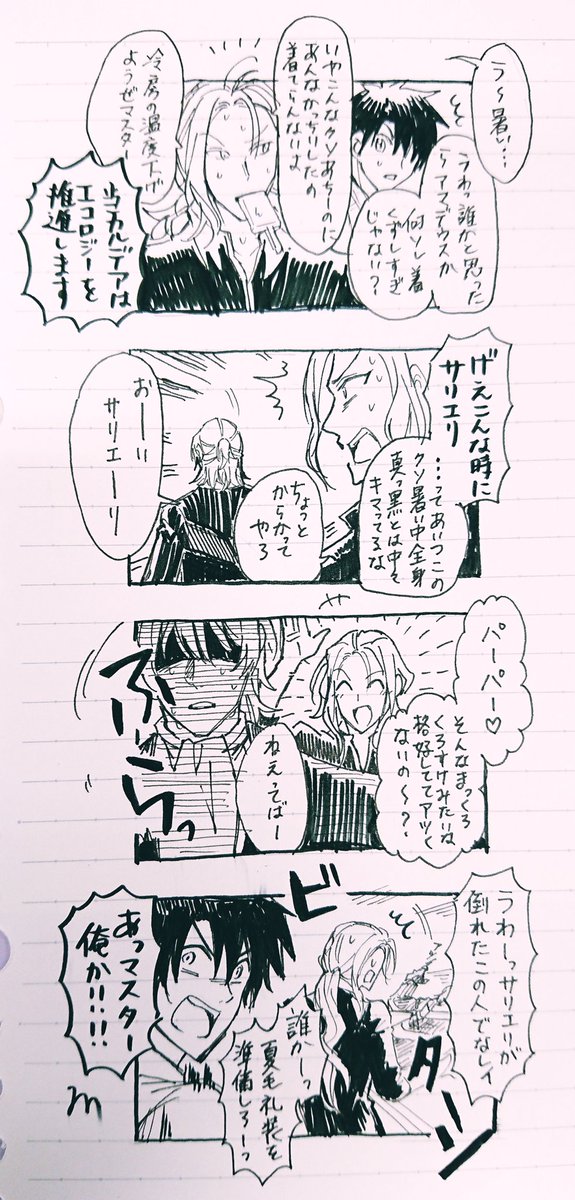 う〜暑い…
うわっ誰かと思った
らアマデウスか
何ソレ着
くずしすぎ
じゃない?
いやこんなクソあちーのに
あんなかっちりしたの
着てらんないよ
冷房の温度下げ
ようぜマスター
当カルデアは
エコロジーを
推進します
げえこんな時に
サリエリ
…ってあいつこの
クソ暑い中全身
真っ黒とは中々
キマってるな
ちょっと
からかって
やろ
おーい
サリエーリ
パーパー♡
そんなまっくろ
くろすけみたいな
格好しててアツく
ないの〜?
ねえってばー
ふらっ
うわーっサリエリが
倒れたこの人でなしィ
ビターン
誰かーっ
夏毛礼装を
準備しろーっ
あっマスター
俺か!!!!